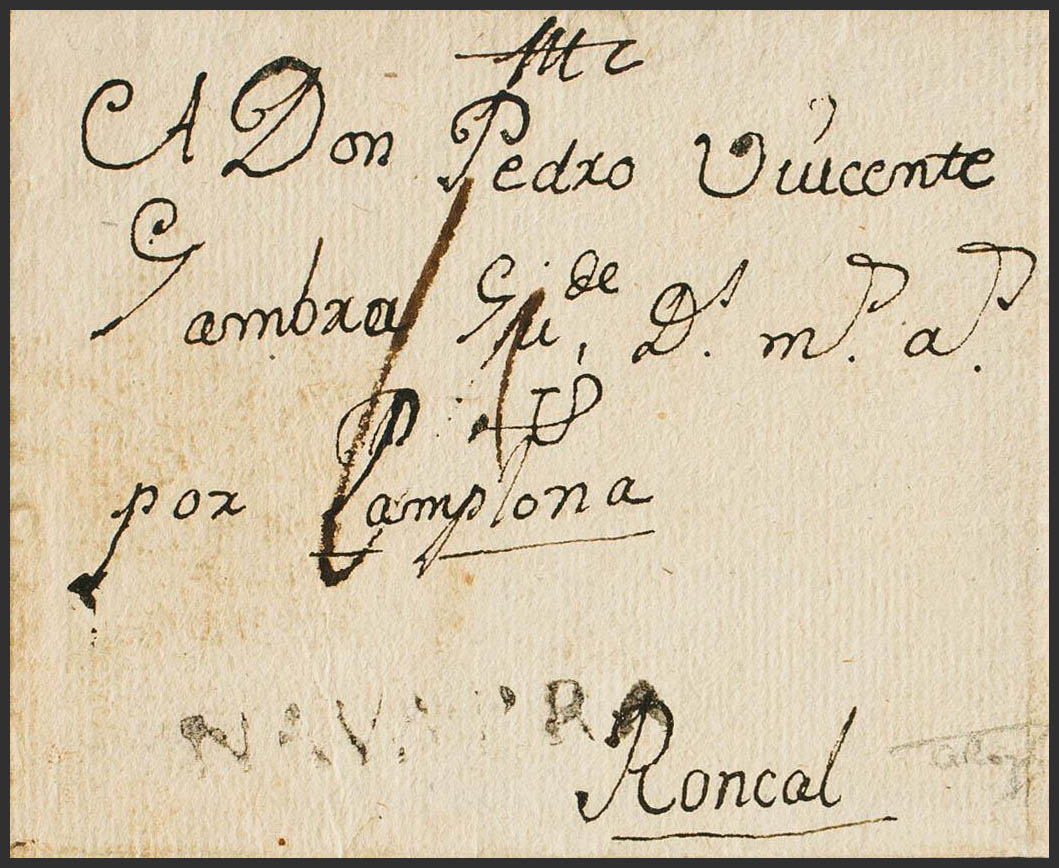 A Don Pedro Viucente
Gambra Gu.de Ds. mP. aP.
por Pamplona
NAVARRA
Roncal